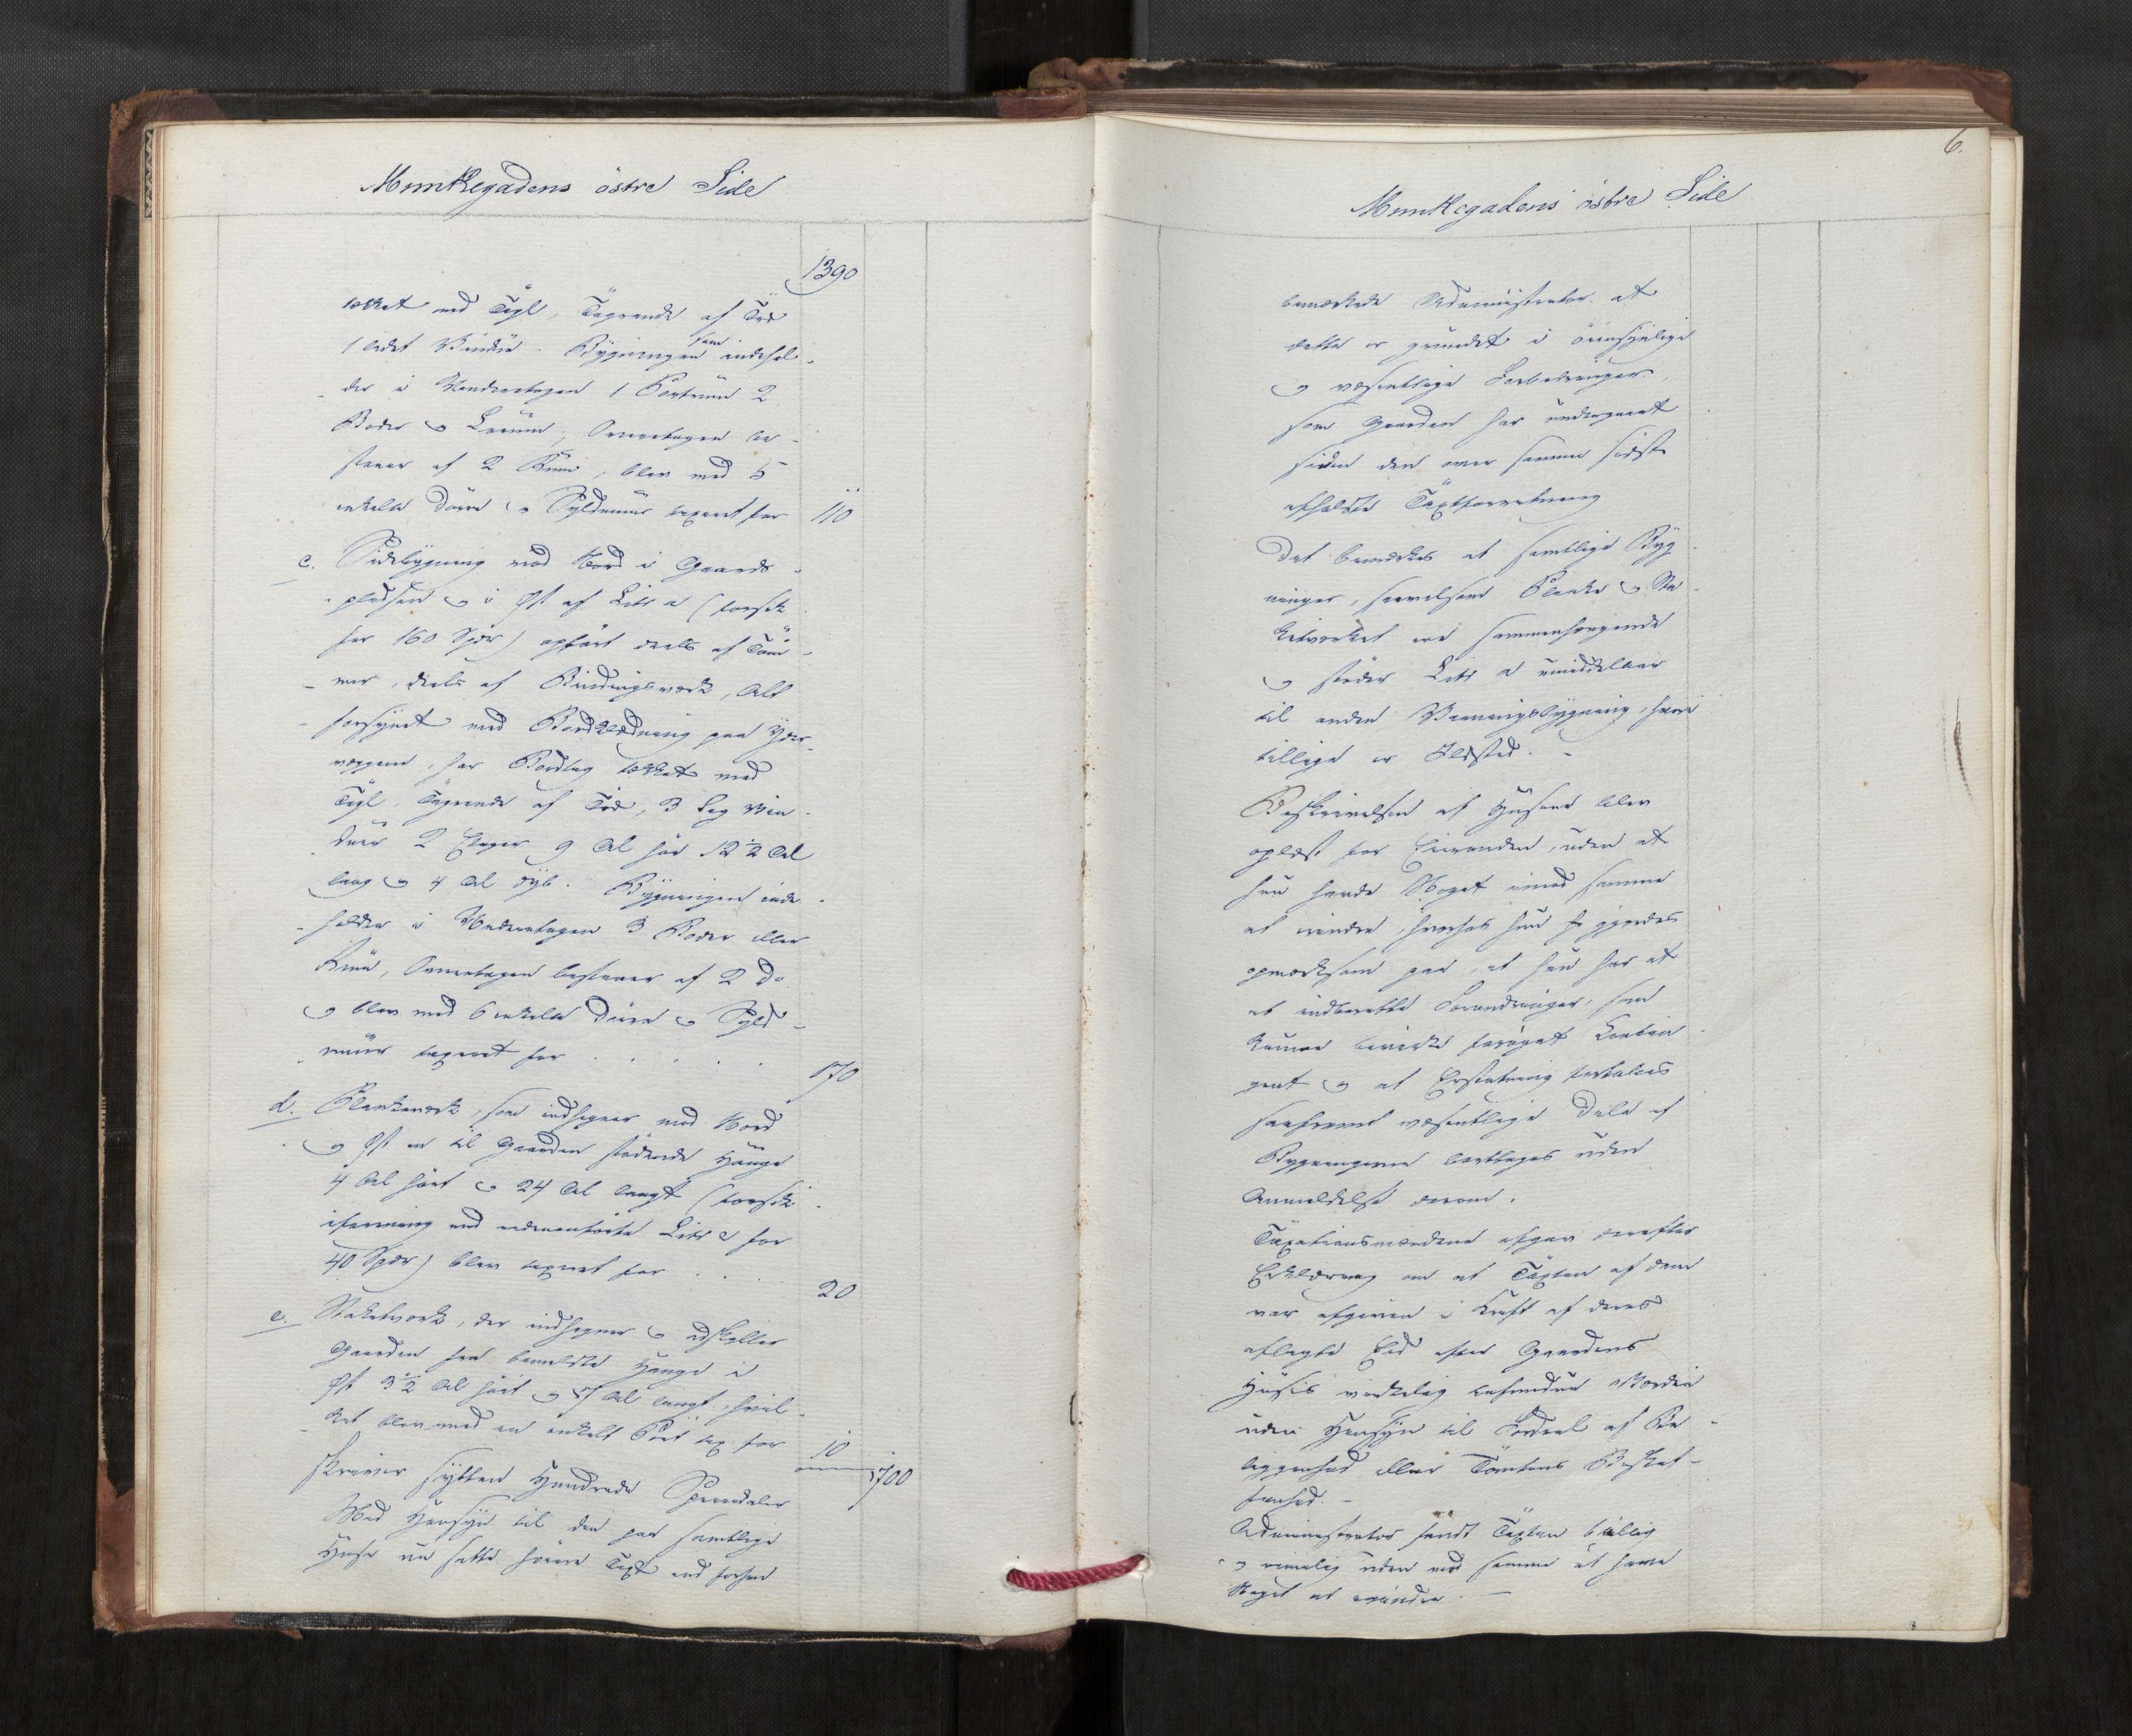 Munkegadens östre Side
1390
tækket med Tegl, Tagrende af Træ
1 lidet Vindue. Bygningen som indehol-
der i Underetagen 1 Portrum 2
Boder og Laaum, Overetagen be-
staaer af 2 Rum, blev med 5
enkelte Döre og Syldmuur taxeret for 110
c. Sidebygning mod Nord i Gaards-
pladsen og i Øst af Litr a (forsik
for 160 Spdr) opfört deels af Töm-
mer, deels af Bindingsværk, Alt
forsynet med Bordklædning paa Yder-
væggene, har Bordtag tækket med
Tegl, Tagrende af Træ, 3 Fag Vin-
duer 2 Etager 9 Al höi 12½ Al
lang og 4 Al dyb. Bygningen inde-
holder i Underetagen 3 Boder eller
Rum, Overetagen bestaaer af 2 Do
og blev med 6 enkelte Döre og Syld-
muur taxeret for . . . . . 170
d. Plankeværk, som indhegner mod Nord
og Øst en til Gaarden stödende Hauge
4 Al höit og 24 Al langt (forsik
iforening med nedenanförte Litr e for
40 Spdr) blev taxeret for . . . 20
e. Staketværk, der indhegner og adskiller
Gaarden fra bemeldte Hauge i
Øst 3½ Al höit og 7 Al langt, hvil-
ket blev med en enkelt Port tax. for 10
skriver sytten Hundrede Speciedaler 1700
Med Hensyn til den paa samtlige
Huse nu satte höiere Taxt end forhen
6.
Munkegadens östre Side
bemærkede Administrator at
dette er grundet i öiensynlige
og væsentlige Forbedringer,
som Gaarden har undergaaet
siden den over samme sidst
afholdte Taxtforretning
Det bemærkes at samtlige Byg-
ninger, saavelsom Planke og Sta-
ketværket ere sammenhængende
og stöder Litr a umiddelbar
til anden Vaaningsbygning, hvori
tillige er Ildsted. -
Beskrivelsen af Husene blev
oplæst for Eierinden, uden at
hun havde Noget imod samme
at erindre, hvorhos hun gjordes
opmærksom paa, at hun har at
at indberette Forandringer, som
kunne bevirke foröget Contin-
gent og at Erstatning fortabes
saafremt væsentlige Dele af
Bygningerne borttages uden
Anmeldelse derom.
Taxationsmændene afgav derefter
Erklæring om at Taxten af dem
var afgiven i Kraft af deres
aflagte Eed efter Gaardens
Huses virkelig befundne Værdie
uden Hensyn til Fordeel af Be-
liggenhed eller Tomtens Beskaf-
fenhed. -
Administrator fandt Taxten billig
og rimelig uden mod samme at have
Noget at erindre. -